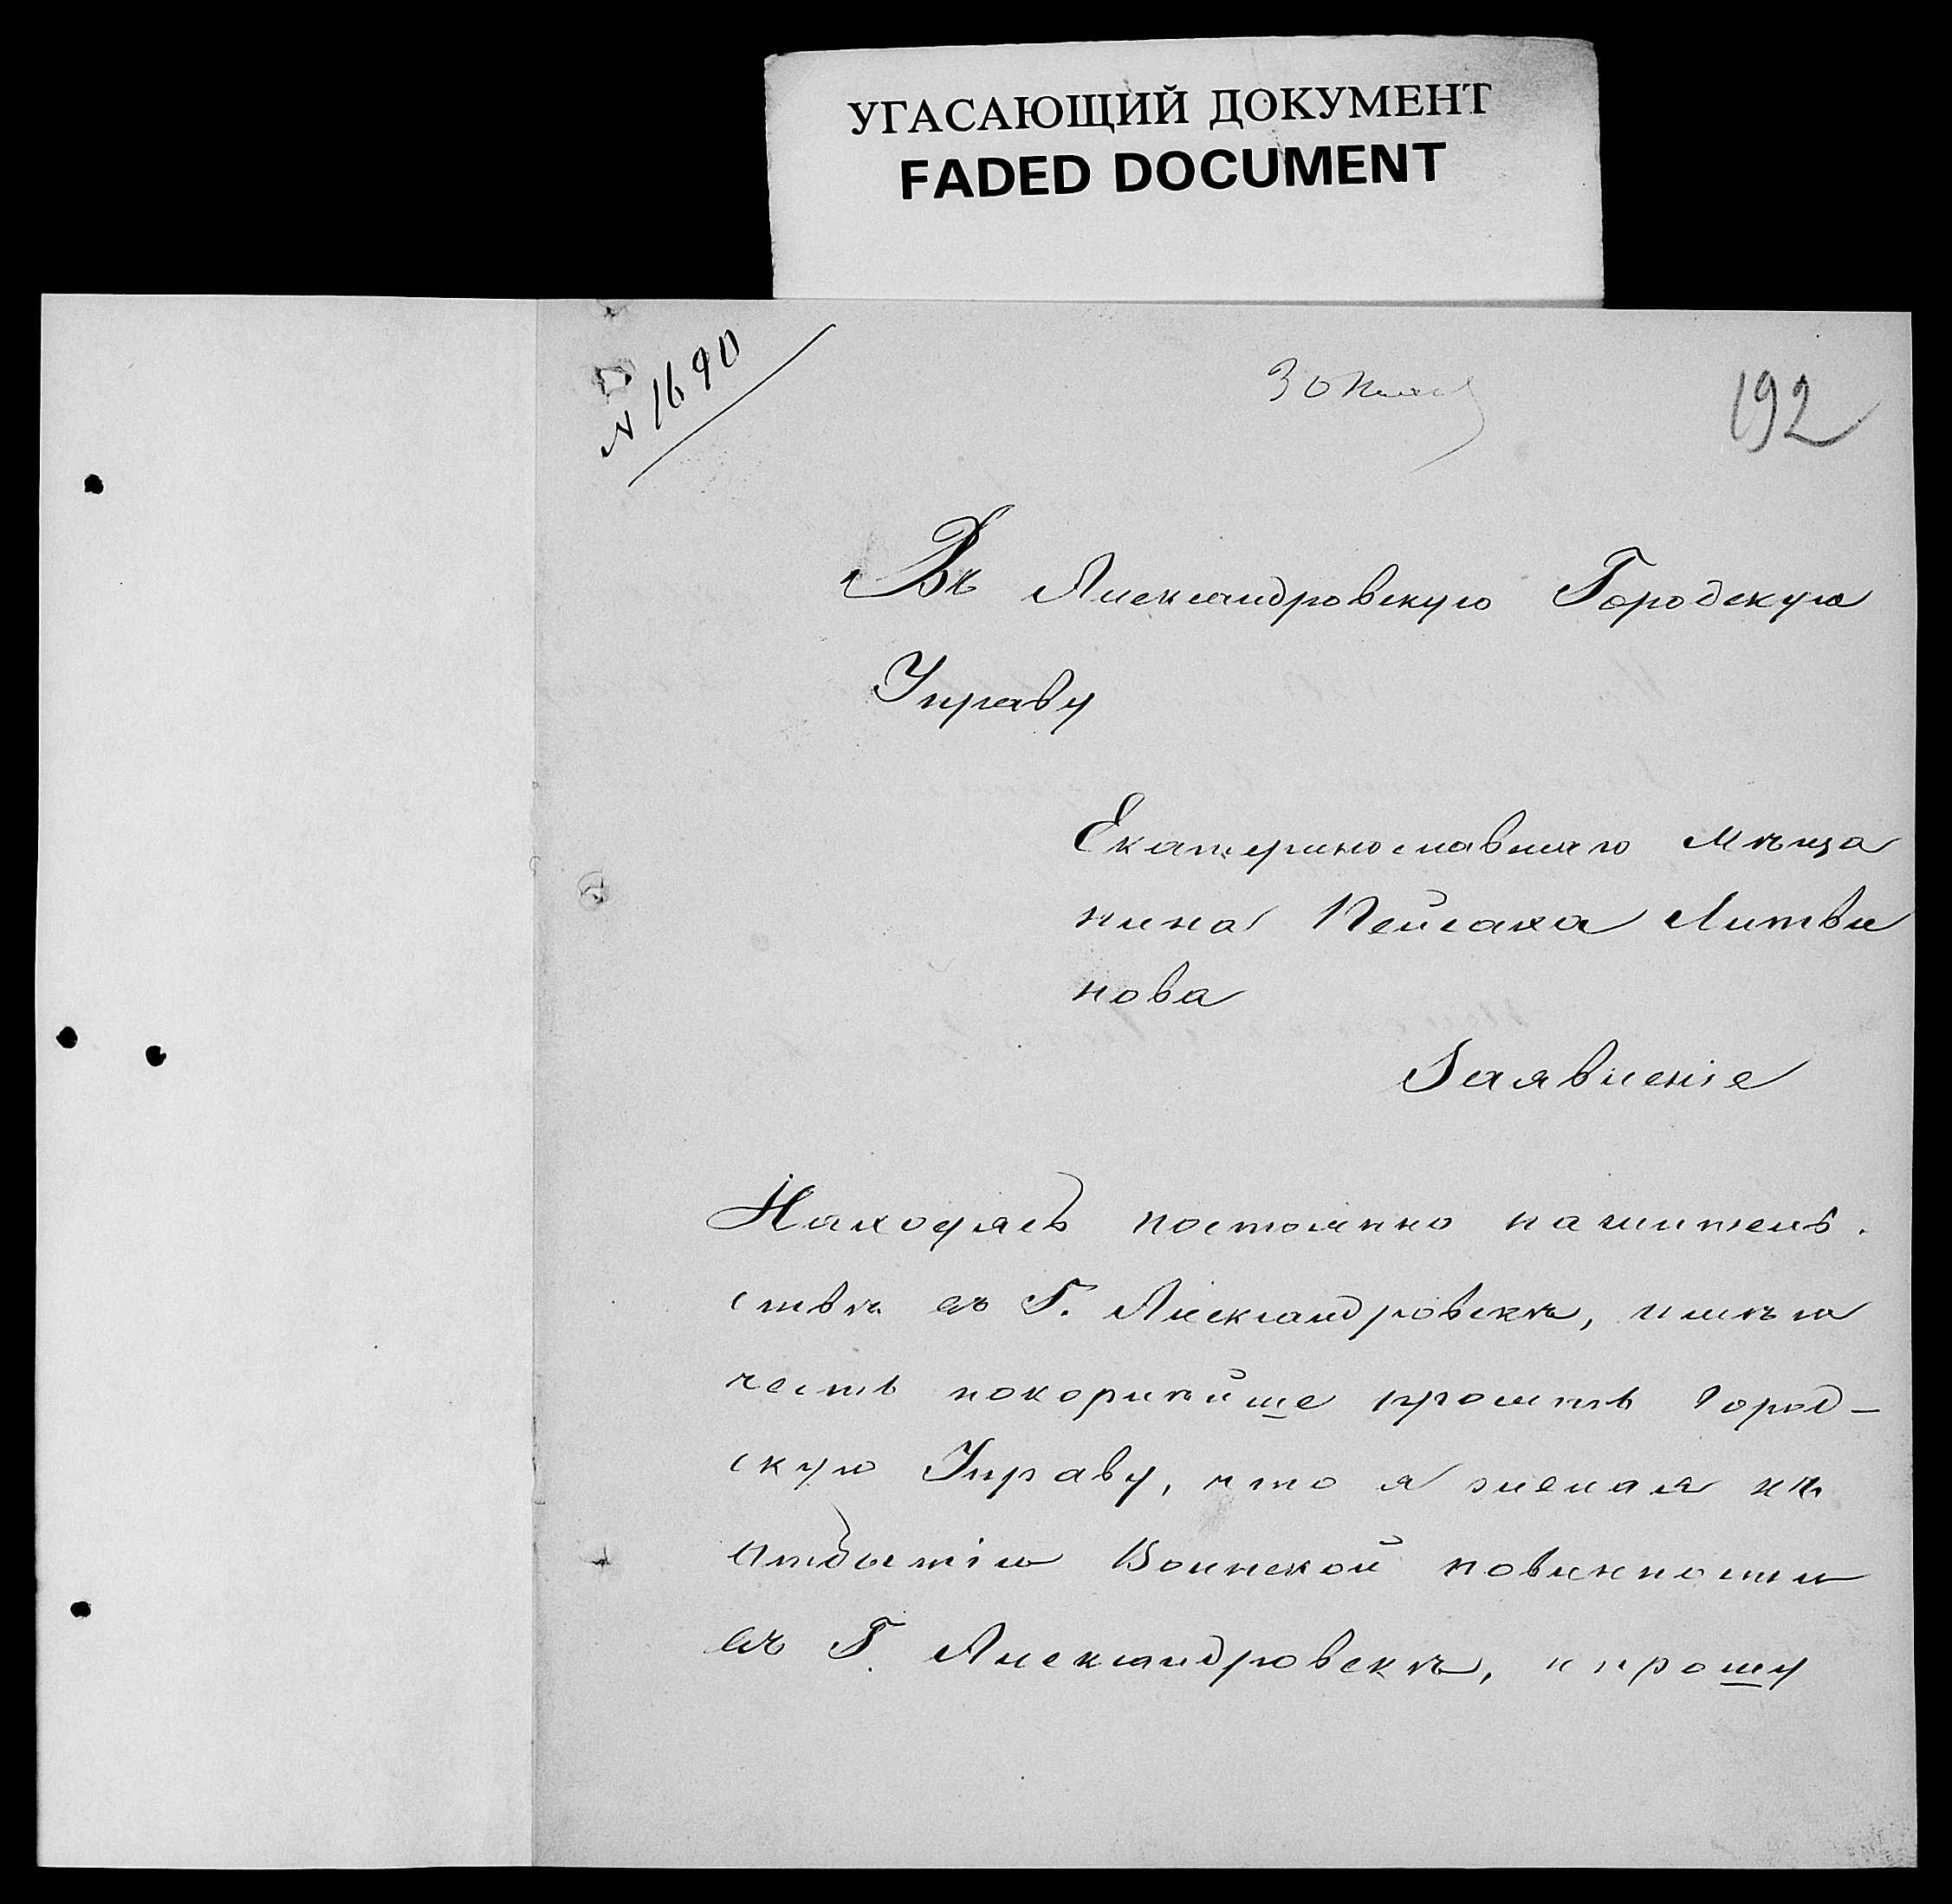 УГАСАЮЩИЙ ДОКУМЕНТ
FADED DOCUMENT
№ 1690
30
192
Въ Александровскую Городскую
Управу
Екатеринославскаго Мѣща
нина Пейсаха Литви
нова
Заявленіе
Находясь постоянно на житель-
ствѣ въ Г. Александровскѣ, имѣю
честь покорнѣйше просить Город-
скую Управу, что я желая къ
отбытію Воинской повинности
въ Г. Александровскѣ, и прошу